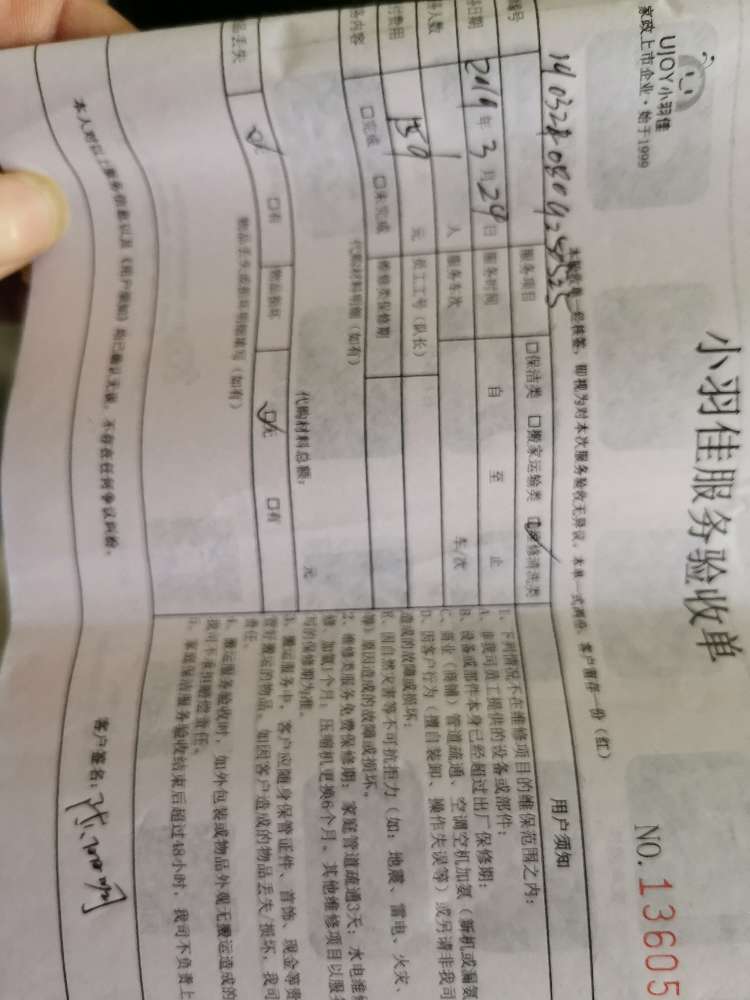 UJOY小羽佳
家政上市企业·始于1999
小羽佳服务验收单
NO.13605
本服务单一经核签，即视为对本次服务验收无异议，本单一式两份，客户留存一份（红）
编号
服务项目 □保洁类 □搬家运输类 修清洗类
日期 2019年3月29日 服务时间 自 至 止
人数 1 人 服务车次 车/次
费用 150 元 员工工号（队长）
内容 □完成 □未完成 维修类保修期
代购材料明细（如有）
代购材料总额： 元
品丢失 □有 物品损坏 □无 □有
物品丢失或损坏明细填写（如有）
用户须知
1、下列情况不在维修项目的维保范围之内：
A、非我司员工提供的设备或部件；
B、设备或部件本身已经超过出厂保修期；
C、商业（商铺）管道疏通、空调空机加氨（新机或漏氨
D、因客户行为（擅自装卸、操作失误等）或另请非我司
造成的故障或损坏；
E、因自然灾害等不可抗拒力（如：地震、雷电、火灾、
等）原因造成的故障或损坏。
2、维修类服务免费保修期：家庭管道疏通3天；水电维
修、加氨1个月；压缩机更换6个月。其他维修项目以服
写的保修期为准。
3、搬运服务中，客户应随身保管证件、首饰、现金等贵
管好搬运的物品。如因客户造成的物品丢失/损坏，我司
责任。
4、搬运服务验收时，如外包装或物品外观无搬运造成的
我司不承担赔偿责任。
5、家庭保洁服务验收结束后超过48小时，我司不负责上
本人对以上服务信息以及《用户须知》均已确认无误，不存在任何争议纠纷。
客户签名：